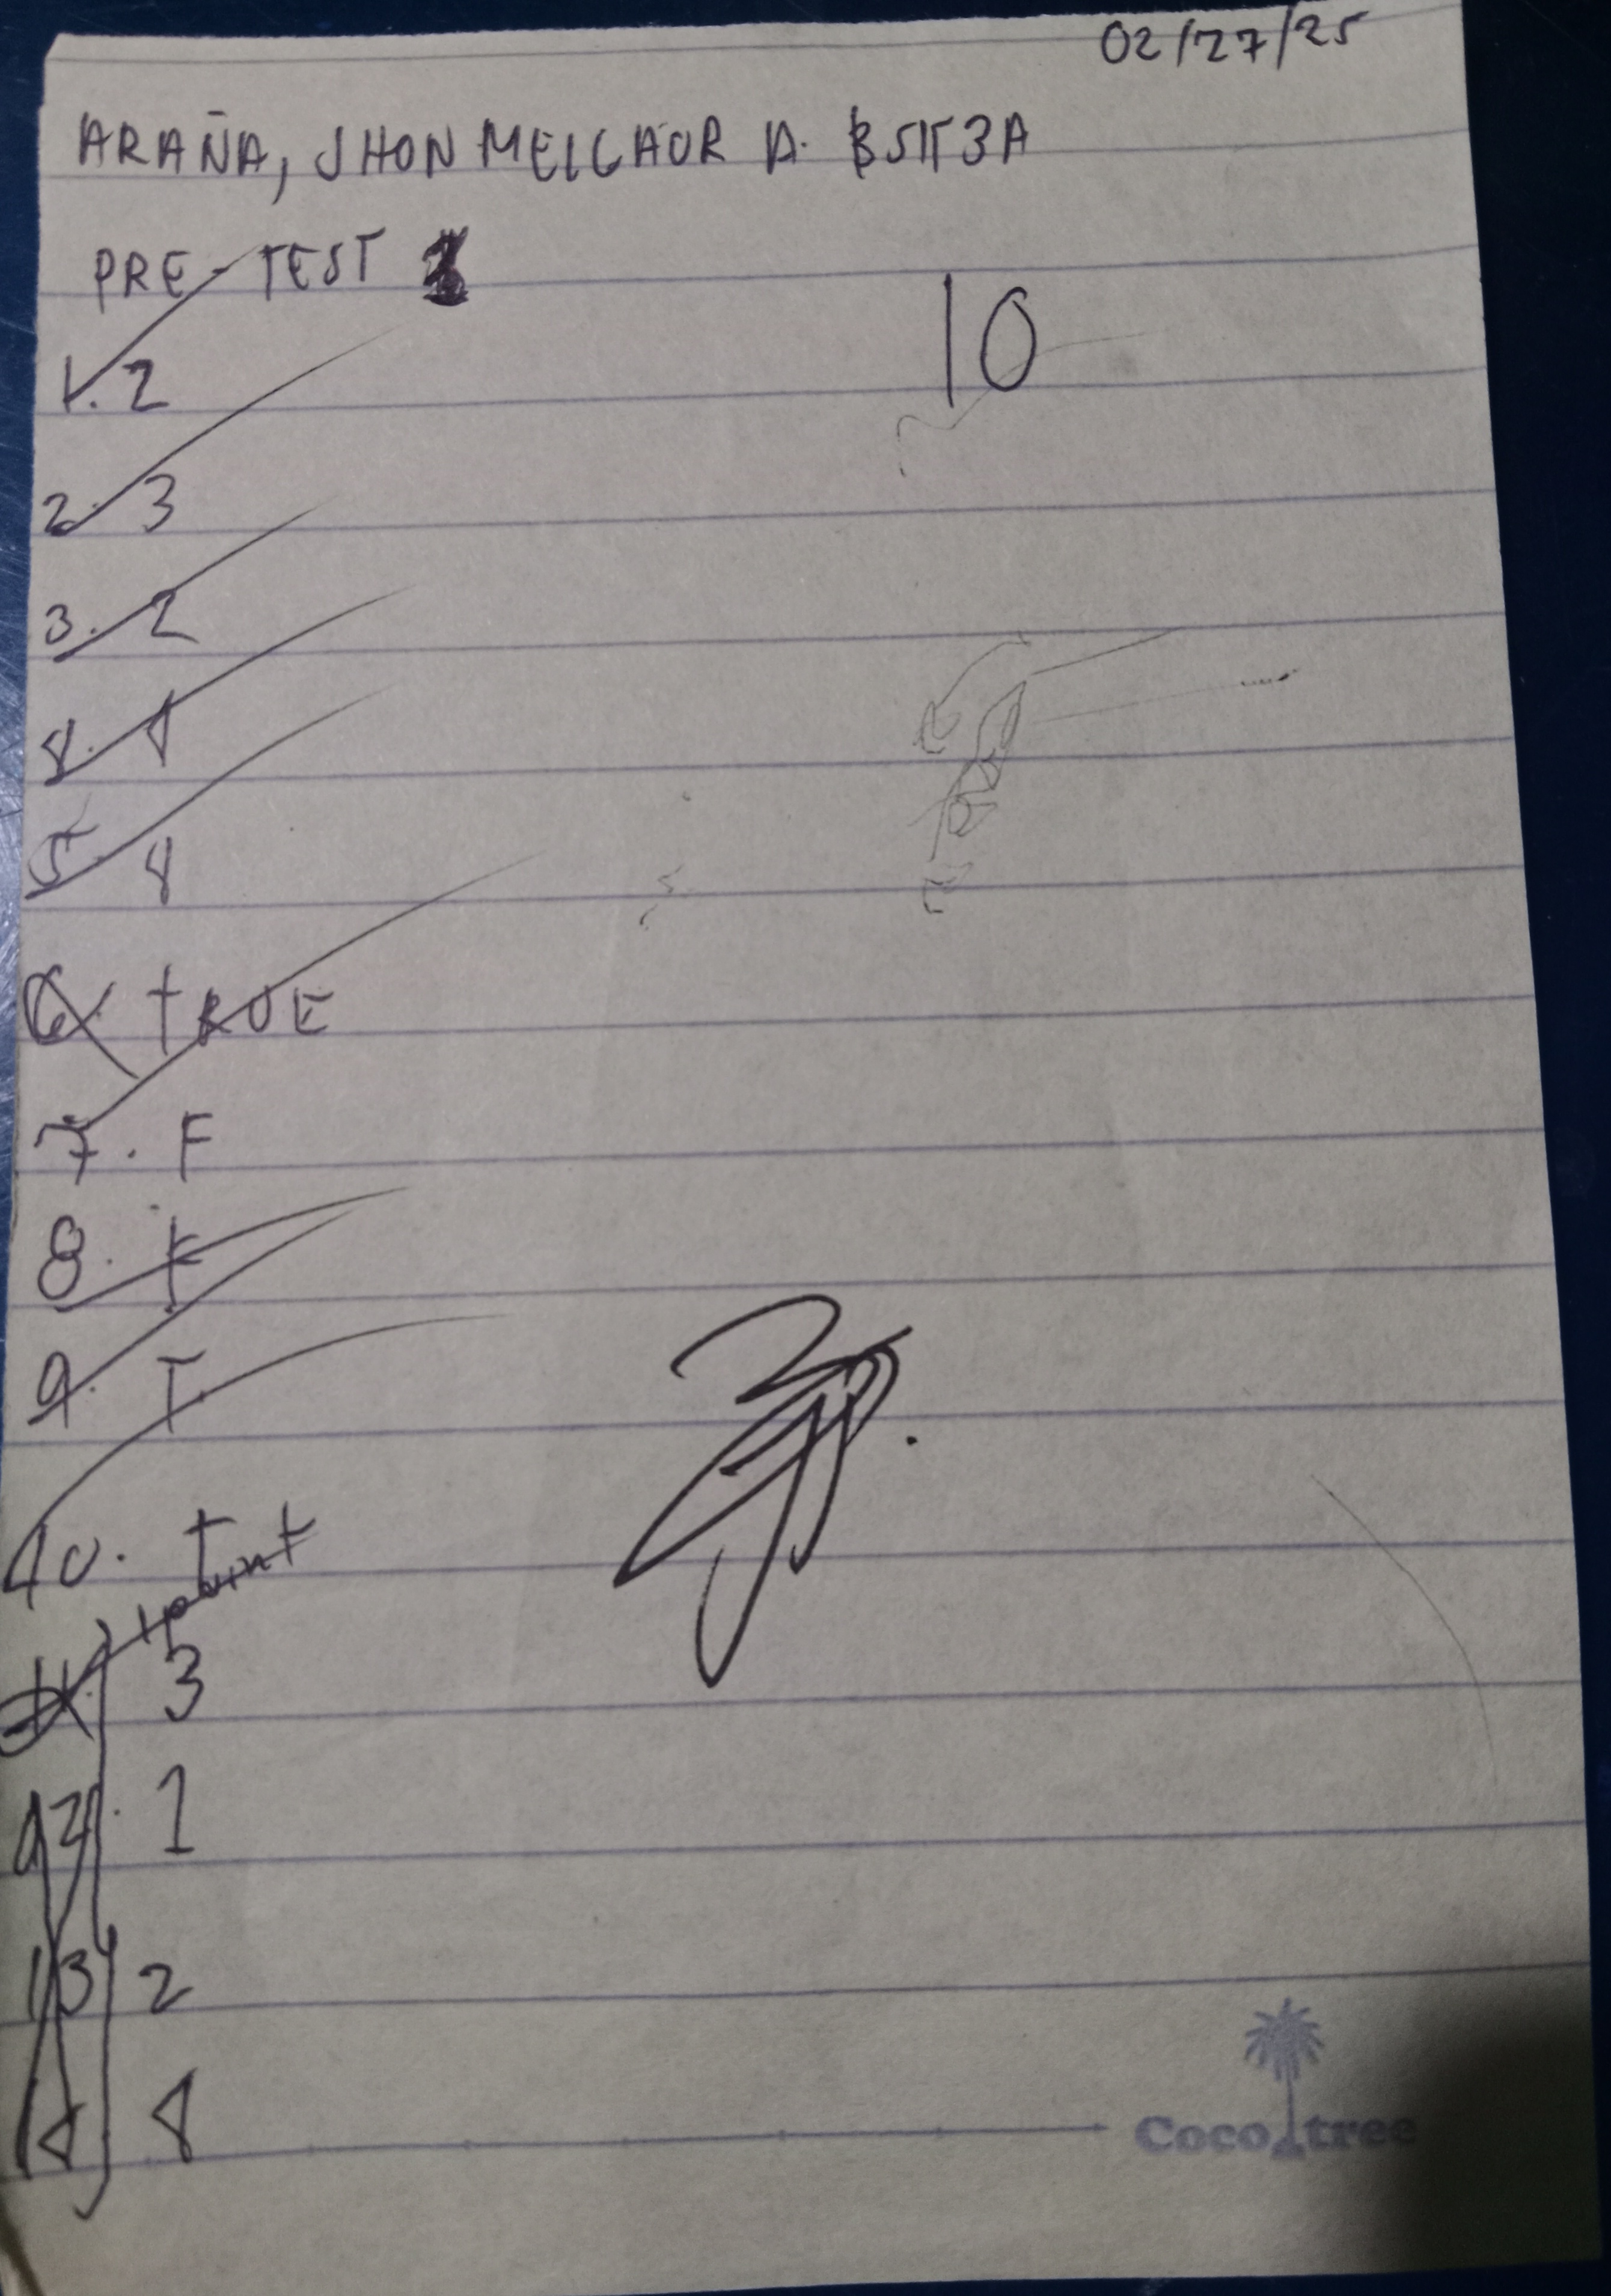 02/27/25
ARAÑA, JHON MELCAOR A. BSIT 3A
PRE-TEST
10
1. 2
2. 3
3. 2
4. 4
5. 4
6. TRUE
7. F
8. F
9. T
10. T
1 point
11. 3
12. 1
13 2
14 4
Coco tree